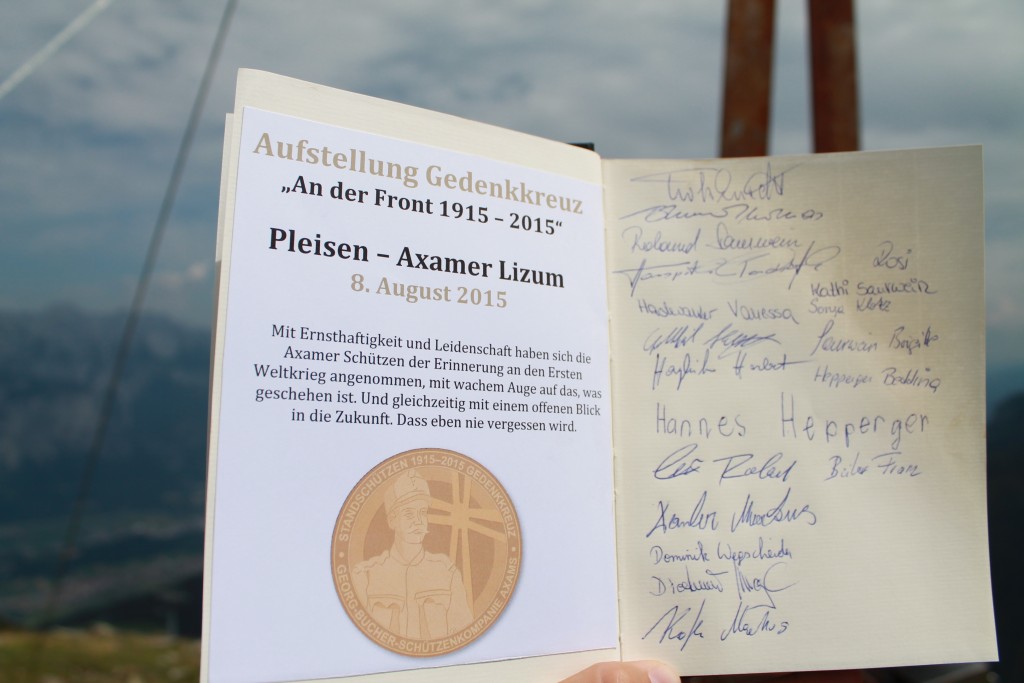 Aufstellung Gedenkkreuz
„An der Front 1915 – 2015“
Pleisen – Axamer Lizum
8. August 2015
Mit Ernsthaftigkeit und Leidenschaft haben sich die
Axamer Schützen der Erinnerung an den Ersten
Weltkrieg angenommen, mit wachem Auge auf das, was
geschehen ist. Und gleichzeitig mit einem offenen Blick
in die Zukunft. Dass eben nie vergessen wird.
STANDSCHÜTZEN 1915–2015 GEDENKKREUZ
GEORG-BUCHER-SCHÜTZENKOMPANIE AXAMS
Roland Saurwein
Rosi
Kathi Saurwein
Vanessa
Sonja Klotz
Saurwein Brigitte
Hepperger
Hannes Hepperger
Franz
Markus
Dominik Wegscheider
Markus